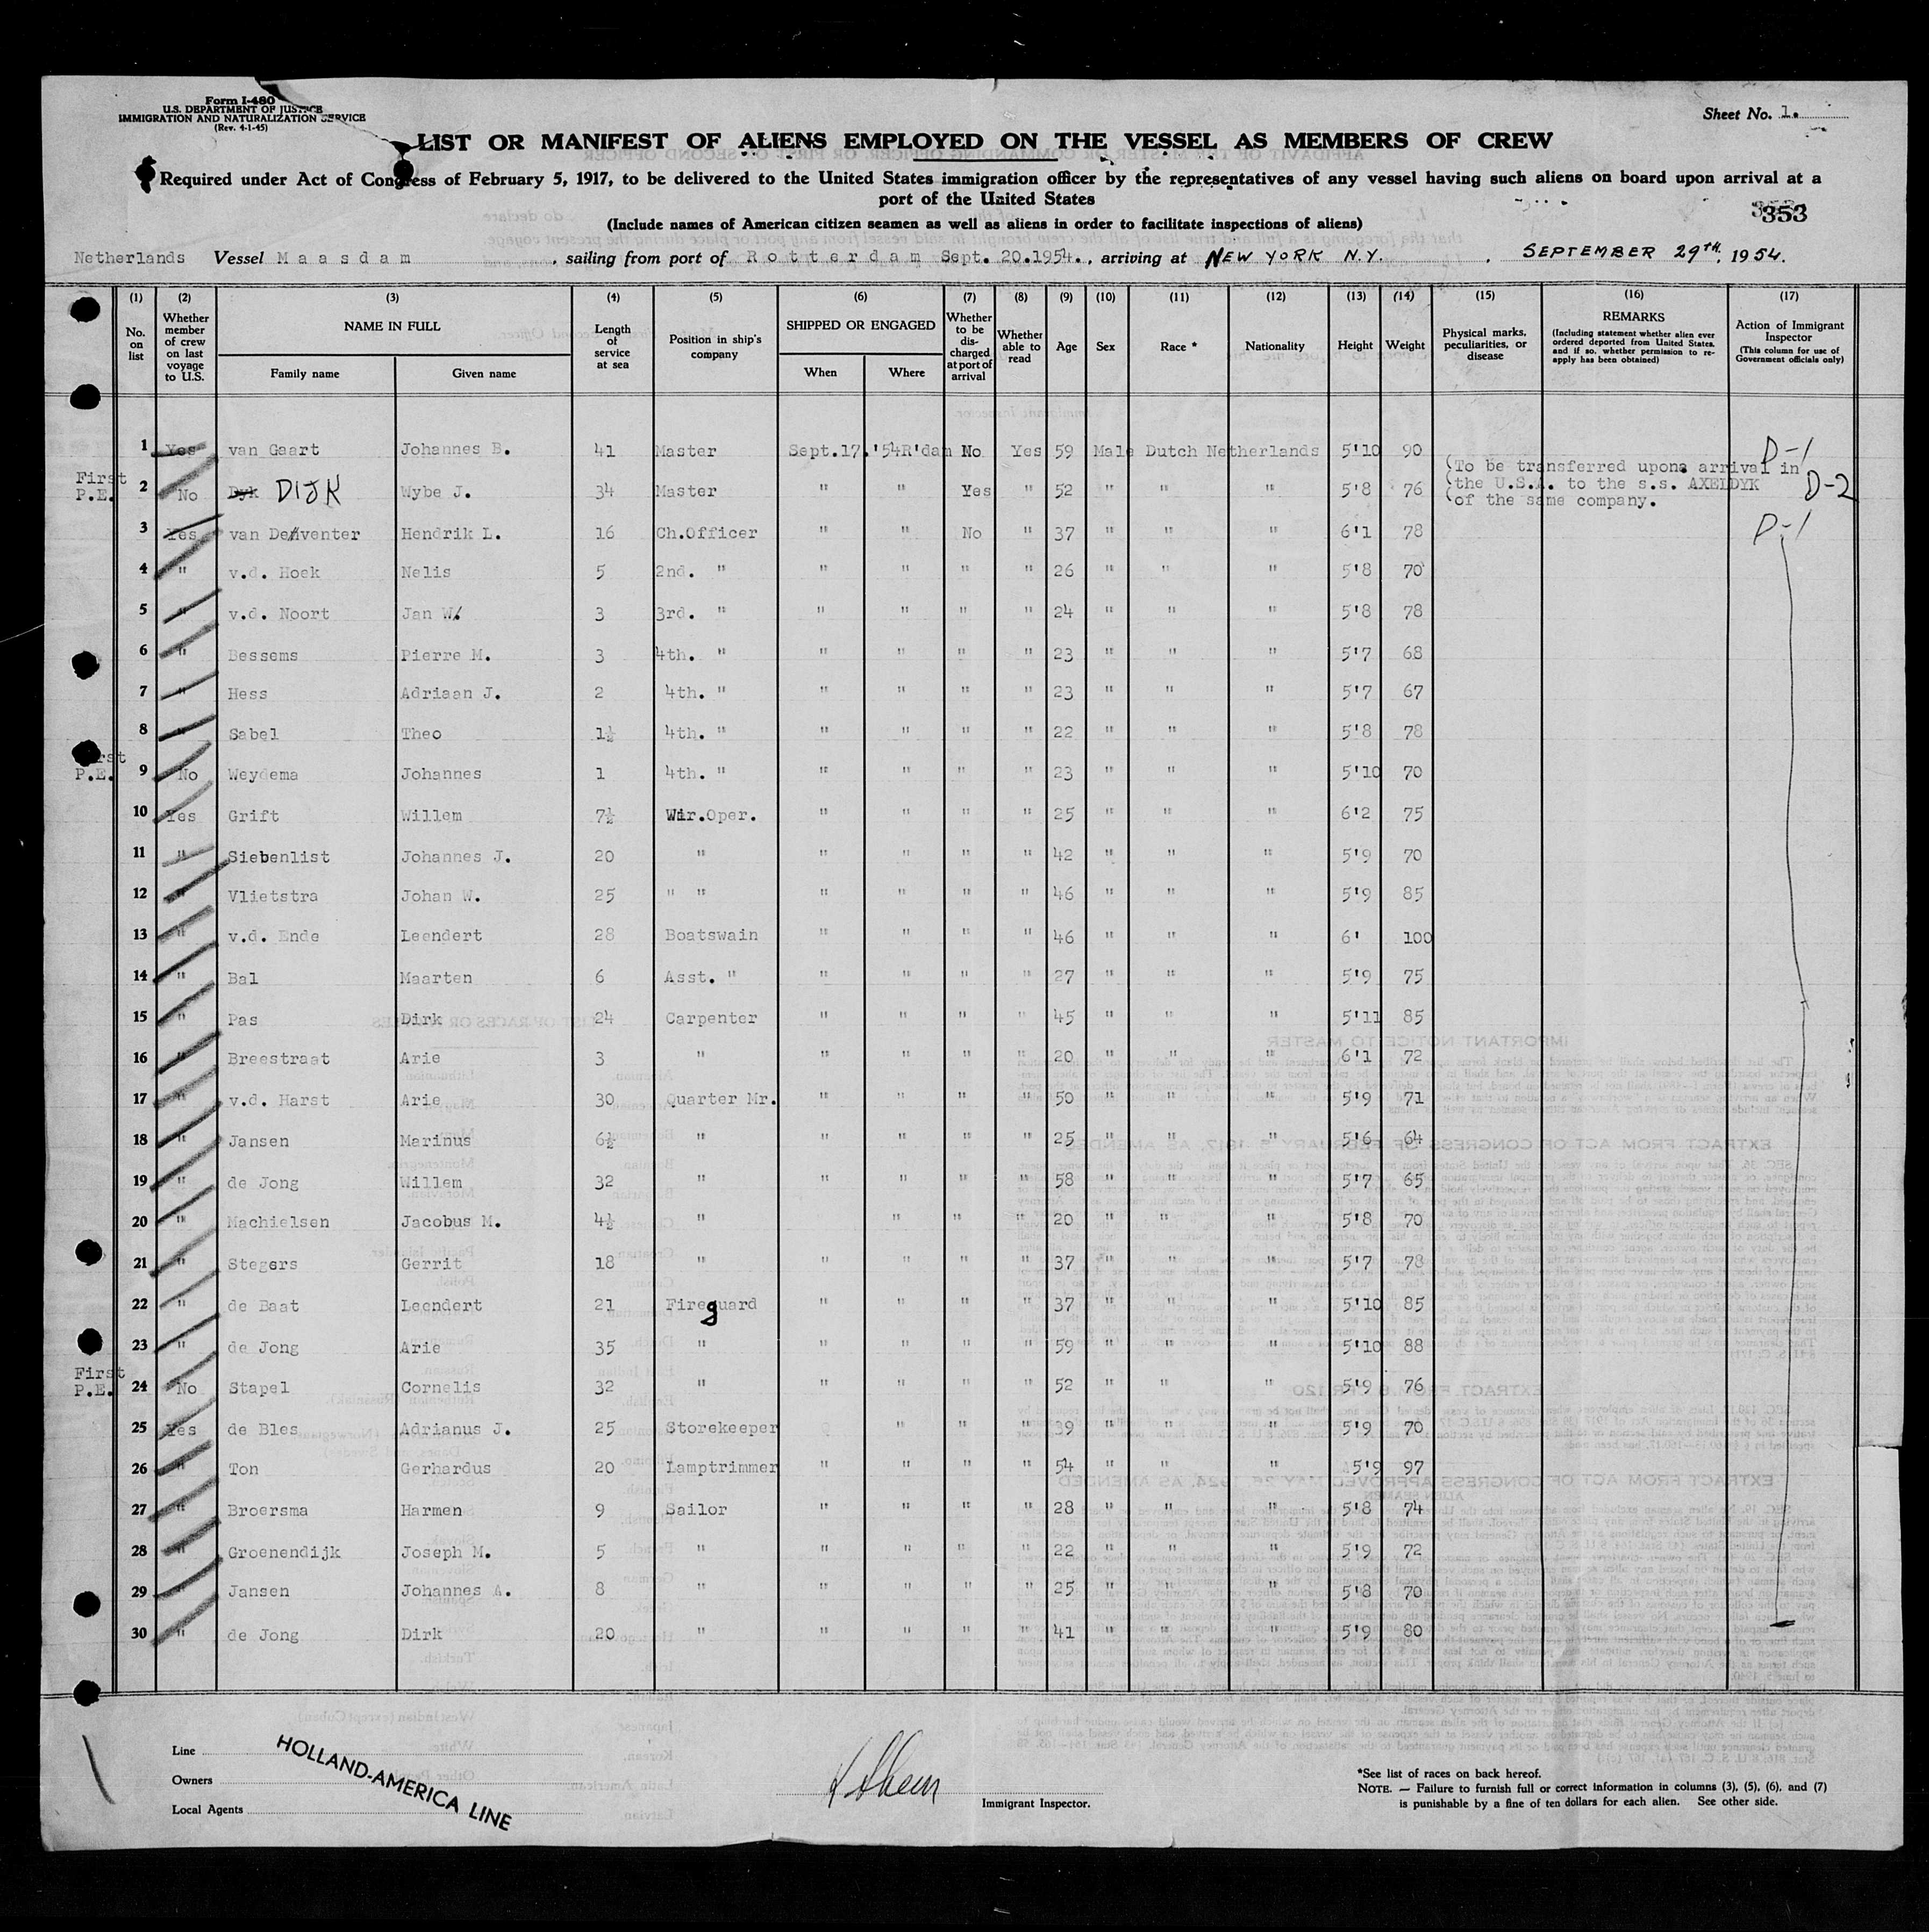 Form I-480
U.S. DEPARTMENT OF JUSTICE
IMMIGRATION AND NATURALIZATION SERVICE
(Rev. 4-1-45)
Sheet No. 1.
LIST OR MANIFEST OF ALIENS EMPLOYED ON THE VESSEL AS MEMBERS OF CREW
Required under Act of Congress of February 5, 1917, to be delivered to the United States immigration officer by the representatives of any vessel having such aliens on board upon arrival at a
port of the United States
(Include names of American citizen seamen as well as aliens in order to facilitate inspections of aliens)
353
Netherlands Vessel Maasdam, sailing from port of Rotterdam Sept. 20.1954., arriving at NEW YORK N.Y., SEPTEMBER 29TH, 1954.
(1) (2) (3) (4) (5) (6) (7) (8) (9) (10) (11) (12) (13) (14) (15) (16) (17)
No. on list
Whether member of crew on last voyage to U.S.
NAME IN FULL
Family name Given name
Length of service at sea
Position in ship's company
SHIPPED OR ENGAGED
When Where
Whether to be discharged at port of arrival
Whether able to read
Age Sex Race * Nationality Height Weight
Physical marks, peculiarities, or disease
REMARKS
(Including statement whether alien ever ordered deported from United States, and if so, whether permission to reapply has been obtained)
Action of Immigrant Inspector
(This column for use of Government officials only)
1 Yes van Gaart Johannes B. 41 Master Sept.17.'54 R'dam No Yes 59 Male Dutch Netherlands 5'10 90 D-1
First P.E. 2 No Dyk DIJK Wybe J. 34 Master " " Yes " 52 " " " 5'8 76 (To be transferred upon arrival in
(the U.S.A. to the s.s. AXELDYK D-2
(of the same company.
3 Yes van Deventer Hendrik L. 16 Ch.Officer " " No " 37 " " " 6'1 78 D-1
4 " v.d. Hoek Nelis 5 2nd. " " " " " 26 " " " 5'8 70
5 " v.d. Noort Jan W. 3 3rd. " " " " " 24 " " " 5'8 78
6 " Bessems Pierre M. 3 4th. " " " " " 23 " " " 5'7 68
7 " Hess Adriaan J. 2 4th. " " " " " 23 " " " 5'7 67
8 " Sabel Theo 1½ 4th. " " " " " 22 " " " 5'8 78
First P.E. 9 No Weydema Johannes 1 4th. " " " " " 23 " " " 5'10 70
10 Yes Grift Willem 7½ Wir.Oper. " " " " 25 " " " 6'2 75
11 " Siebenlist Johannes J. 20 " " " " " 42 " " " 5'9 70
12 " Vlietstra Johan W. 25 " " " " " " 46 " " " 5'9 85
13 " v.d. Ende Leendert 28 Boatswain " " " " 46 " " " 6' 100
14 " Bal Maarten 6 Asst. " " " " " 27 " " " 5'9 75
15 " Pas Dirk 24 Carpenter " " " " 45 " " " 5'11 85
16 " Breestraat Arie 3 " " " " " 20 " " " 6'1 72
17 " v.d. Harst Arie 30 Quarter Mr. " " " " 50 " " " 5'9 71
18 " Jansen Marinus 6½ " " " " " 25 " " " 5'6 64
19 " de Jong Willem 32 " " " " " 58 " " " 5'7 65
20 " Machielsen Jacobus M. 4½ " " " " 20 " " " 5'8 70
21 " Stegers Gerrit 18 " " " " " 37 " " " 5'7 78
22 " de Baat Leendert 21 Fireguard " " " " 37 " " " 5'10 85
23 " de Jong Arie 35 " " " " " 59 " " " 5'10 88
First P.E. 24 No Stapel Cornelis 32 " " " " " 52 " " " 5'9 76
25 Yes de Bles Adrianus J. 25 Storekeeper " " " 39 " " " 5'9 70
26 " Ton Gerhardus 20 Lamptrimmer " " " " 54 " " " 5'9 97
27 " Broersma Harmen 9 Sailor " " " " 28 " " " 5'8 74
28 " Groenendijk Joseph M. 5 " " " " " 22 " " " 5'9 72
29 " Jansen Johannes A. 8 " " " " " 25 " " " 5'8 70
30 " de Jong Dirk 20 " " " " " 41 " " " 5'9 80
Line
Owners
Local Agents
HOLLAND-AMERICA LINE
Immigrant Inspector.
*See list of races on back hereof.
NOTE. — Failure to furnish full or correct information in columns (3), (5), (6), and (7)
is punishable by a fine of ten dollars for each alien. See other side.